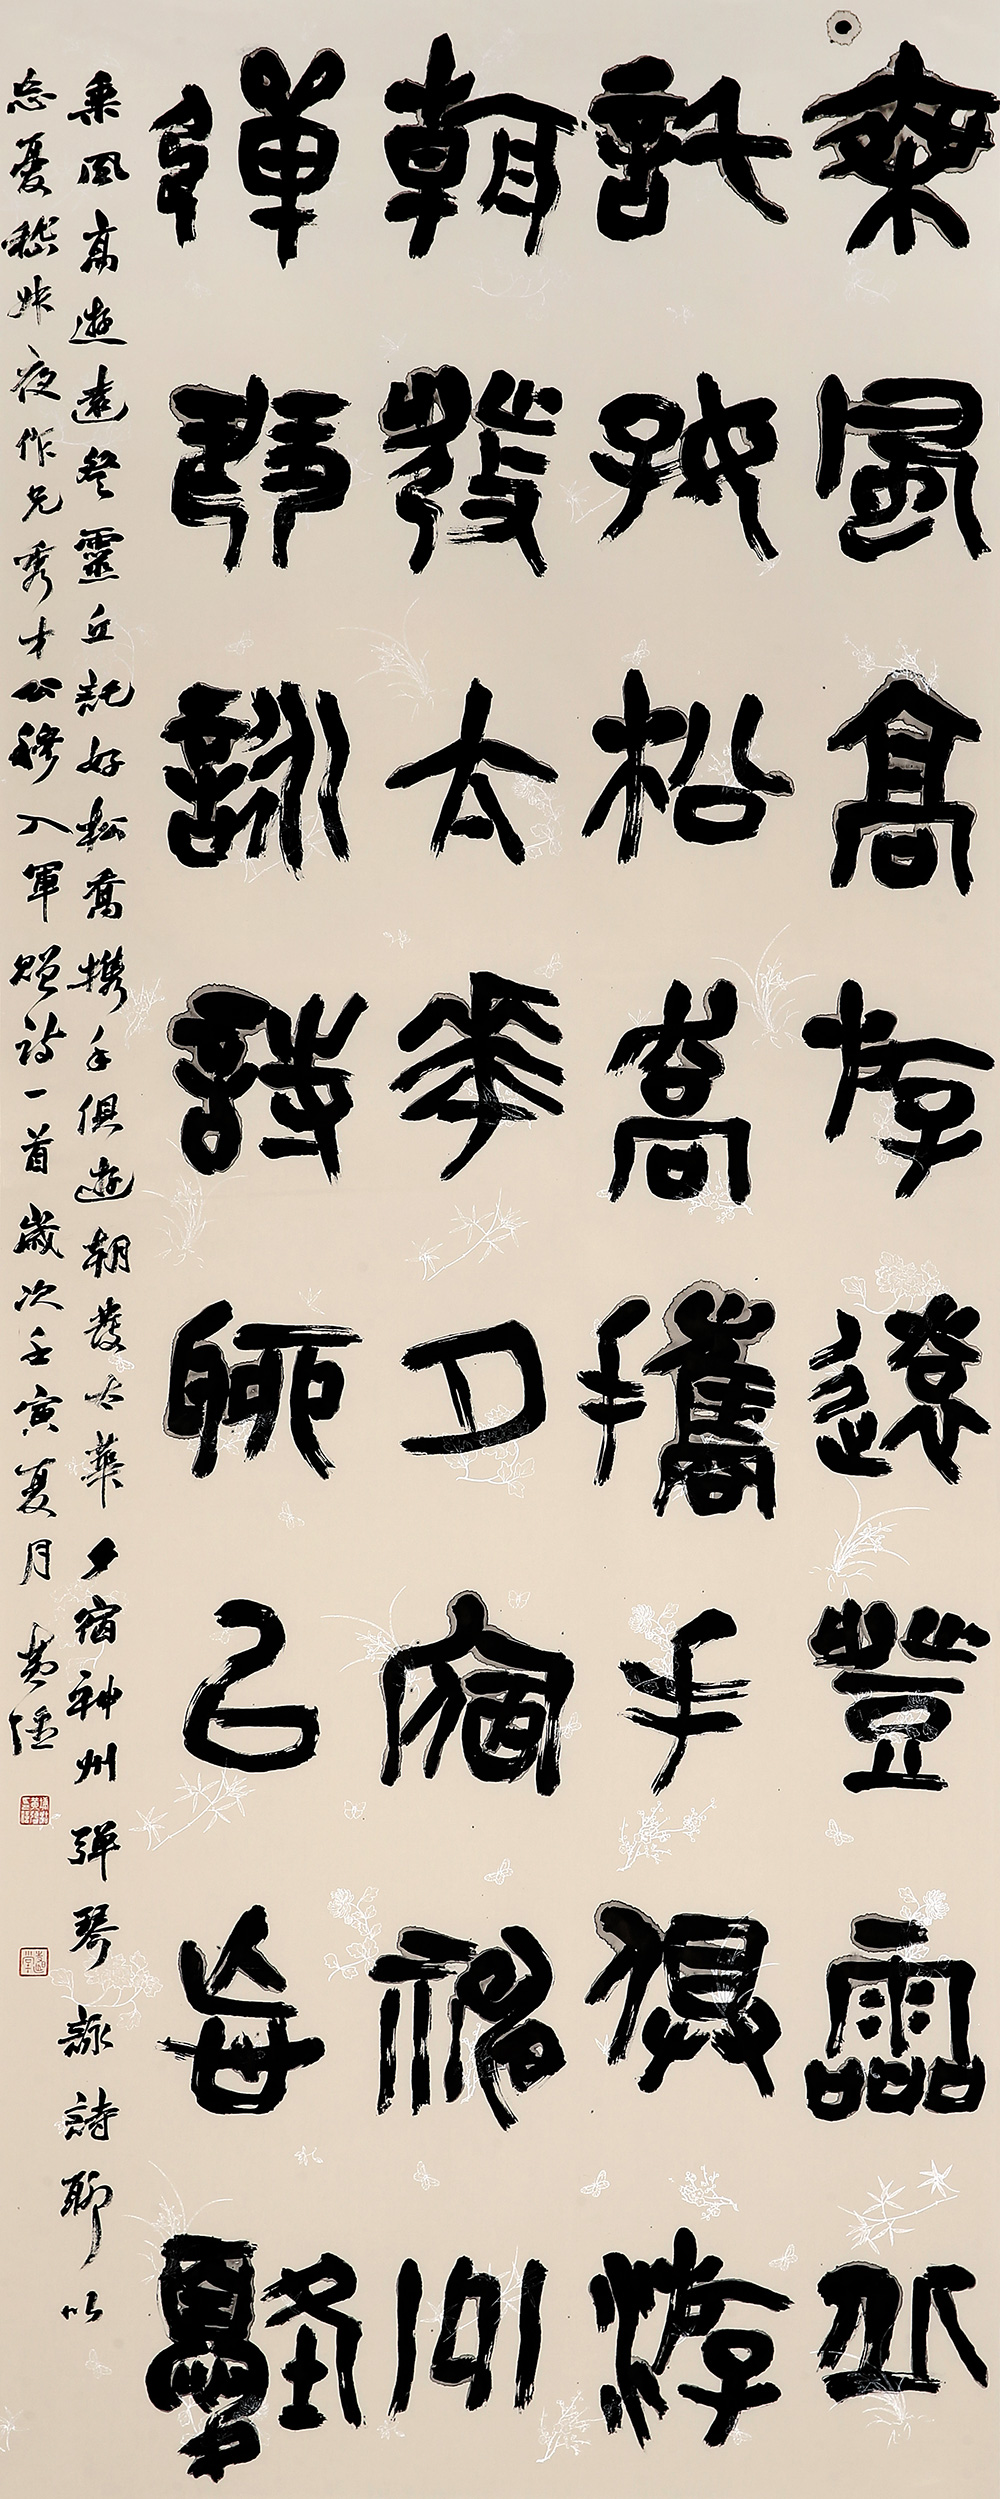 乘風高游遠登靈丘
託好松喬攜手俱游
朝發太華夕宿神州
彈琴詠詩聊以忘憂
乘風高遊遠登靈丘託好松喬携手俱遊朝發太華夕宿神州彈琴詠詩聊以
忘憂嵇叔夜作兄秀才公穆入軍贈詩一首歲次壬寅夏月